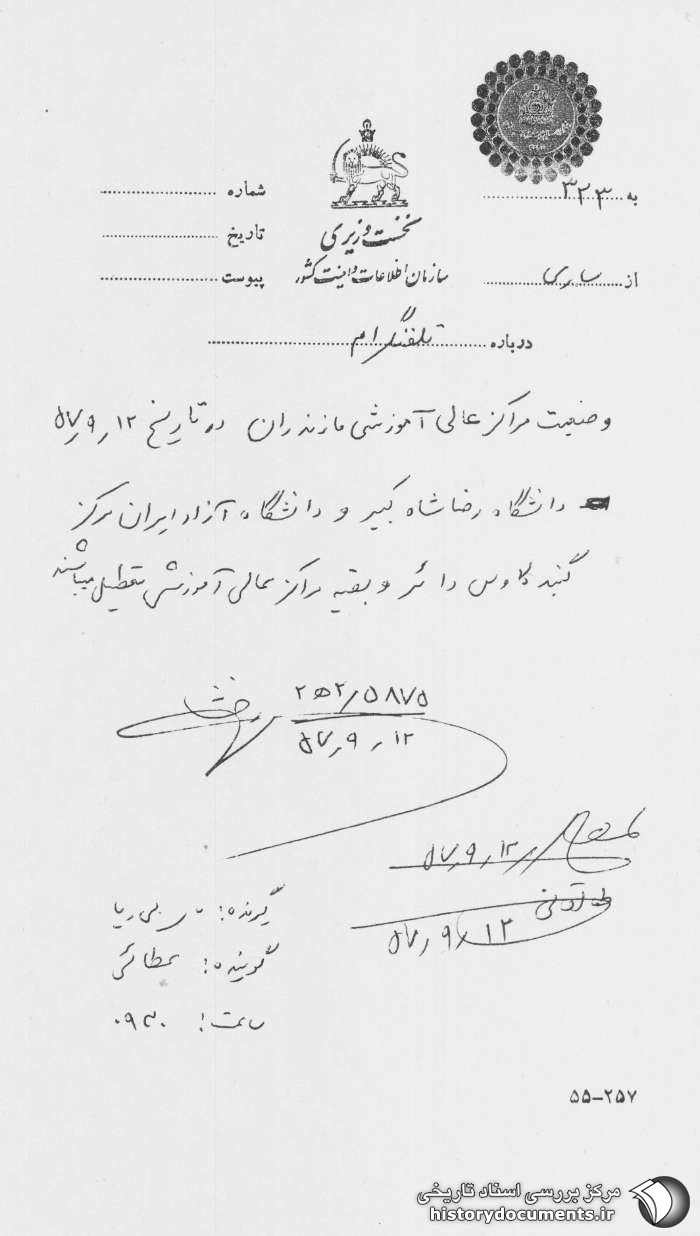 به ۳۲۳
شماره
نخست وزیری
تاریخ
از ساری
سازمان اطلاعات و امنیت کشور
پیوست
درباره تلفنگرام
وضعیت مراکز عالی آموزشی مازندران در تاریخ ۱۲ر۹ر۵۷
دانشگاه رضاشاه کبیر و دانشگاه آزاد ایران مرکز
گنبد کاوس دائر و بقیه مراکز عالی آموزشی تعطیل میباشند
۲ﻫ۲/۵۸۷۵
۱۲ر۹ر۵۷
۱۲ر۹ر۵۷
۱۲ر۹ر۵۷
گیرنده: بی ریا
گوینده: عطائی
ساعت: ۰۹۳۰
۵۵-۲۵۷
مرکز بررسی اسناد تاریخی
historydocuments.ir